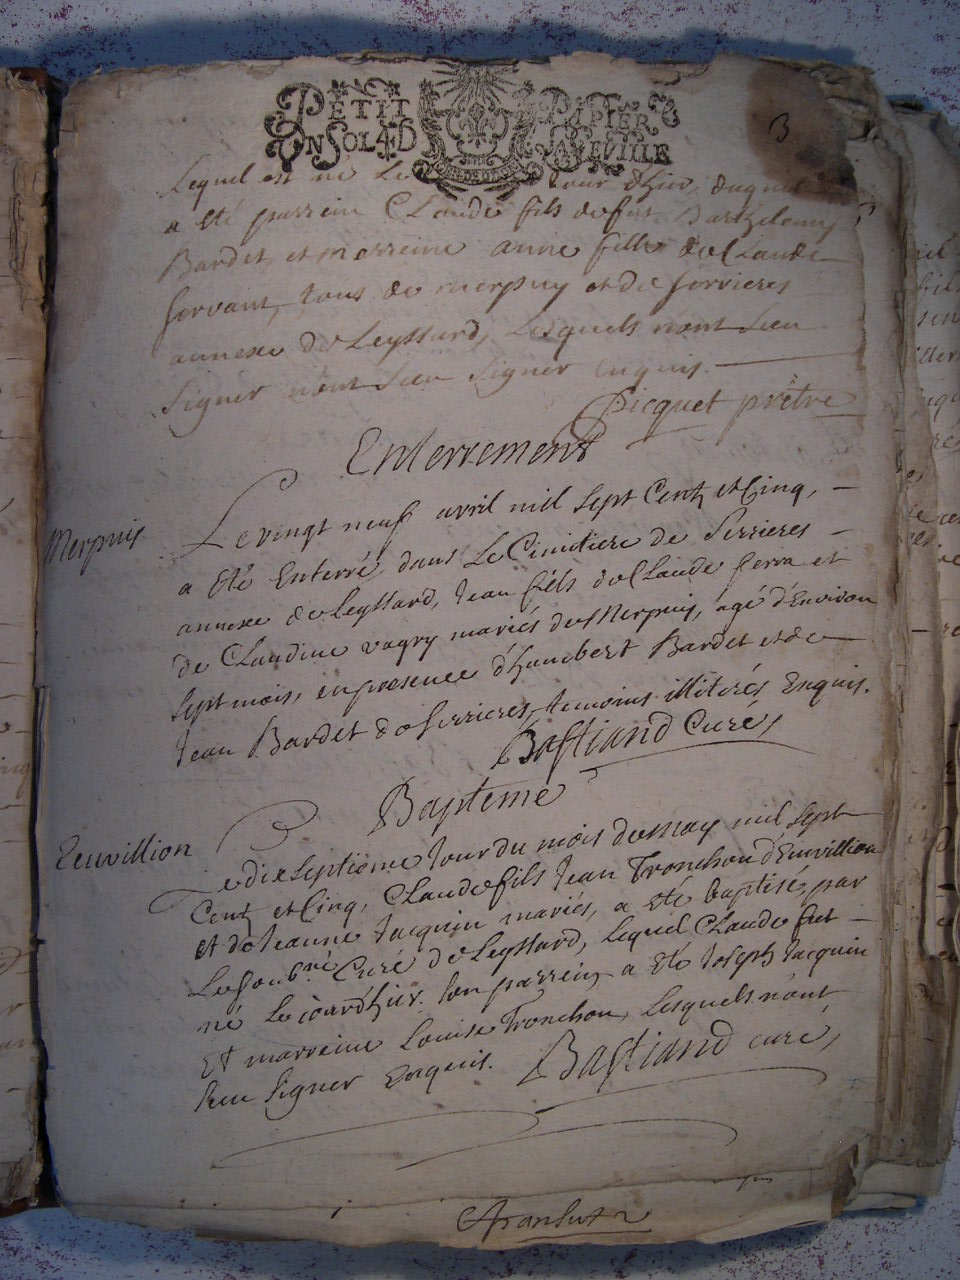 PETIT PAPIER
UN SOL 4 D LA FEUILLE
3
Lequel est né Le jour d'hier, duquel
a été parrein Claude fils de feu Barthelemy
Bardet, et marreine anne fille de Claude
servant, tous de merpuy et de serrieres
annexe de Leyssard, Lesquels nont sceu
signer nont sceu signer enquis.
Picquet prêtre
Enterrement
Merpuis
Le vingt neuf avril mil sept Cent et Cinq,
a eté Enterré, dans Le Cimitiere de Serrieres
annexe de Leyssard, Jean fils de Claude ferra et
de Claudine vagry mariés de Merpuis, agé d'Environ
sept mois, en presence d'humbert Bardet et de
Jean Bardet de serrieres, temoins illiterés Enquis.
Bastiand Curé,
Bapteme
Leuvillion
Le dix septieme Jour du mois de may mil sept
Cent et Cinq, Claude fils Jean Tronchon d'Euvillion
et de Jeanne Jacquin mariés, a eté baptisé, par
Le soub.né Curé de Leyssard, lequel Claude fut
né Le jourd'hier. son parrein a eté Joseph Jacquin
Et marreine Louise Tronchon, Lesquels n'ont
sceu signer Enquis. Bastiand curé,